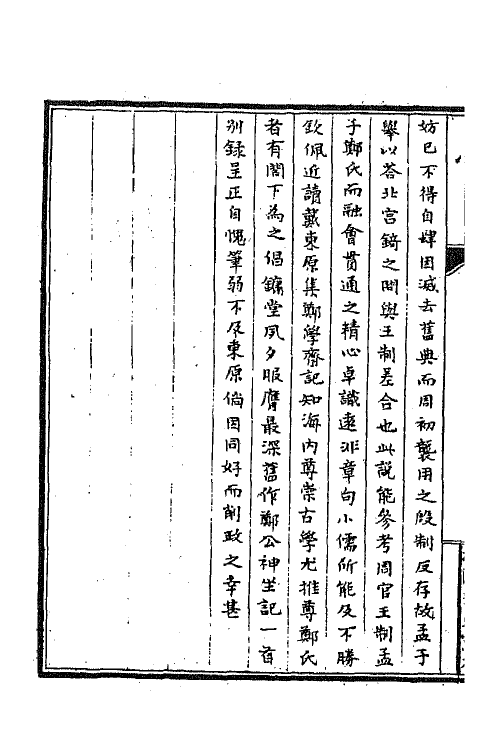 妨已不得自肆因滅去舊典而周初襲用之殷制反存故孟子
舉以荅北宮錡之問與王制差合也此說能參考周官王制孟
子鄭氏而融會貫通之精心卓識遠非章句小儒所能及不勝
欽佩近讀戴東原集鄭學齋記知海内尊崇古學尤推尊鄭氏
者有閣下為之倡鏞堂夙夕服膺最深舊作鄭公神坐記一首
别録呈正自愧筆弱不及東原倘因同好而削政之幸甚